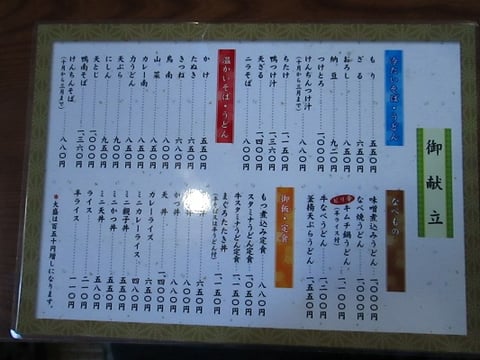 御献立
冷たいそば・うどん
もり 五五〇円
ざる 六五〇円
おろし 八五〇円
納豆 九二〇円
つけとろ 九〇〇円
けんちんつけ汁
(十月から三月まで)
ちたけ 一、一五〇円
鴨つけ汁 一、三六〇円
天ざる 一、四〇〇円
ニラそば
温かいそば・うどん
かけ 五五〇円
たぬき
きつね 六八〇円
鳥南
山菜
カレー南 八五〇円
力うどん
天ぷら 九五〇円
にしん
天とじ 一、〇〇〇円
鴨南そば 一、三六〇円
けんちんそば 八八〇円
(十月から三月まで)
なべもの
味噌煮込みうどん 一、〇〇〇円
なべ焼うどん 一、〇〇〇円
ピリ辛 キムチ鍋うどん 一、一〇〇円
(半ライス付)
牛なべうどん 一、二〇〇円
釜揚天ぷらうどん 一、五五〇円
御飯・定食
もつ煮込み定食 八八〇円
スタミナうどん定食 一、〇五〇円
牛スタミナうどん定食 一、一五〇円
まぐろたたき丼 一、一五〇円
六五〇円
かつ丼 八八〇円
天丼 一、四〇〇円
カレーライス 六五〇円
ミニカレーライス 四八〇円
ミニ親子丼 五五〇円
ミニかつ丼 五五〇円
ミニ天丼 五八〇円
ライス 二一〇円
半ライス 一一〇円
*大盛は百五十円増しになります。